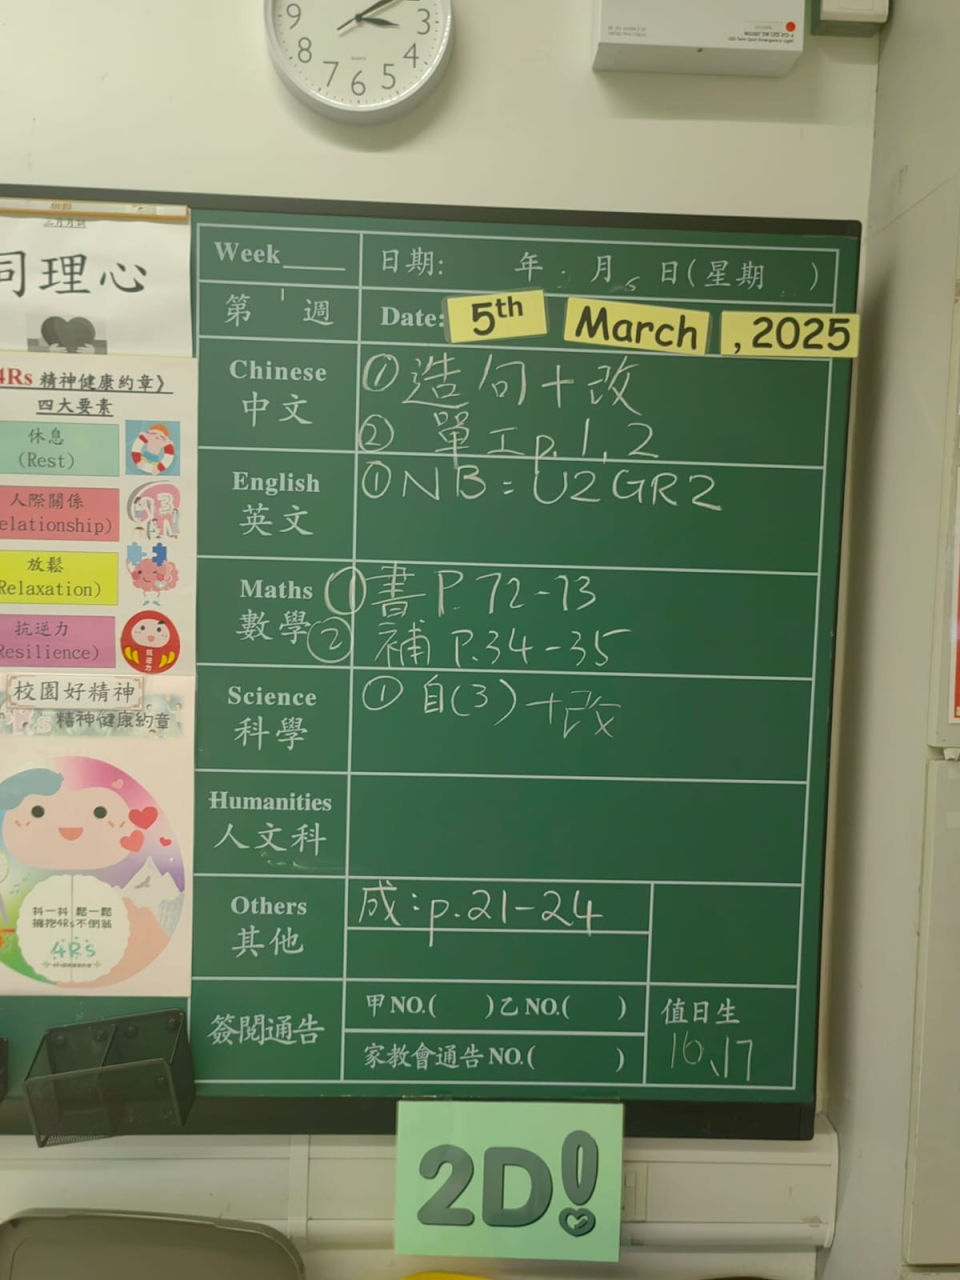 9
3
8
4
7
6
5
同理心
Week____
日期: 年 月 日(星期 )
第 週
Date: 5th March , 2025
4Rs 精神健康約章》
四大要素
休息
(Rest)
人際關係
elationship)
放鬆
Relaxation)
抗逆力
Resilience)
抗逆力
校園好精神
精神健康約章
抖一抖 鬆一鬆
擁抱4Rs不倒翁
4Rs
Chinese
中文
①造句+改
② 單工p.1,2
English
英文
①NB: U2 GR2
Maths
數學
①書 P.72-73
② 補 P.34-35
Science
科學
① 自(3)+改
Humanities
人文科
Others
其他
成:p.21-24
簽閱通告
甲NO.( )乙NO.( )
家教會通告NO.( )
值日生
16、17
2D!